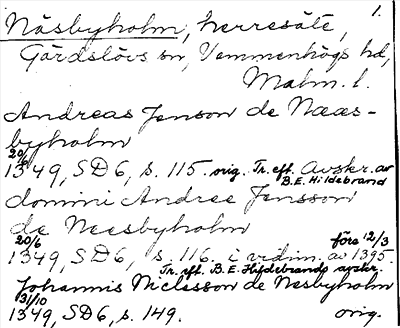 1.
Näsbyholm, herresäte,
Gärdslövs sn, Vemmenhögs hd,
Malm. l.
Andreas Jenson de Næs-
byholm
20/6
1349, SD6, s. 115. orig. Tr. eft. Avskr. av
B.E. Hildebrand
domini Andree Jensson
de Neesbyholm
20/6 före 12/3
1349, SD6, s. 116. i vidim. av 1395.
Tr. eft. B.E. Hildebrands avskr.
Johannis Niclisson de Nesbyholm
31/10
1349, SD6, s. 149. orig.